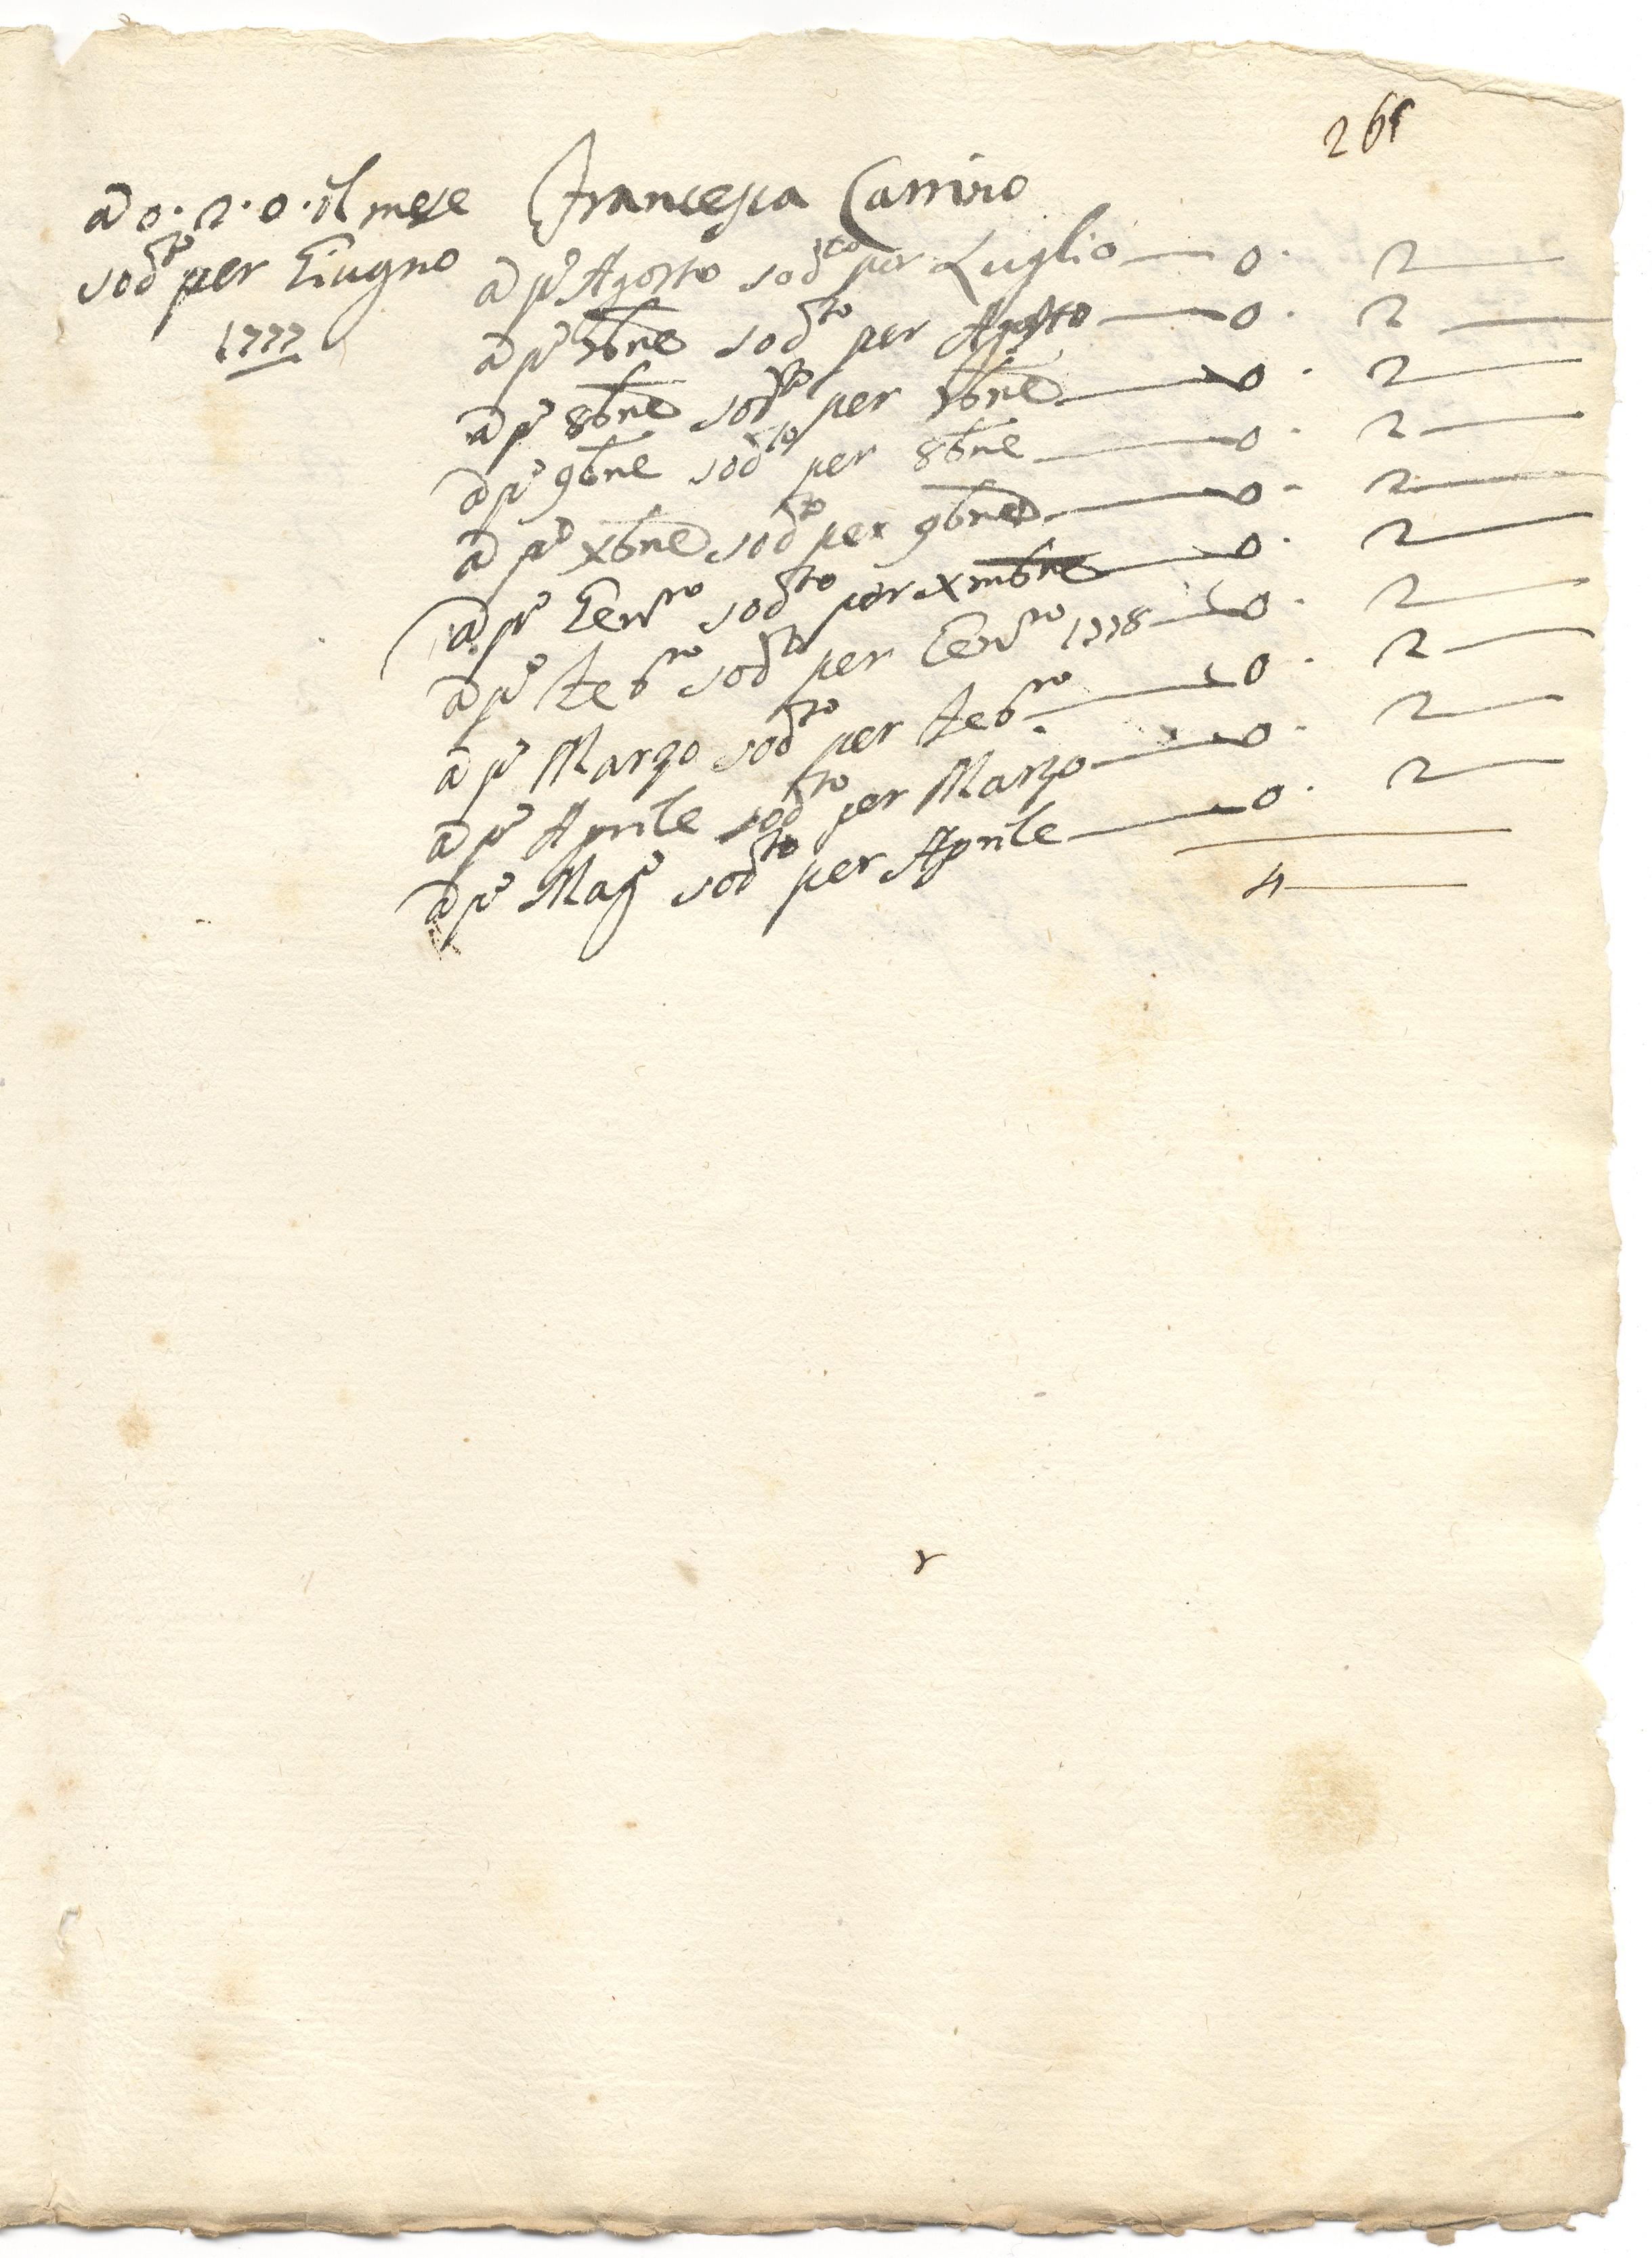 265
a 0. 2. 0. il mese
sod.to per Giugno
1777
Francesca Carrivo
a p.o Agosto sod.to per Luglio — 0. 2 —
a p.o 7bre sod.to per Agosto — 0. 2 —
a p.o 8bre sod.to per 7bre — 0. 2 —
a p.o 9bre sod.to per 8bre — 0. 2 —
a p.o xbre sod.to per 9bre — 0. 2 —
a p.o Gen.ro sod.to per xmbre — 0. 2 —
a p.o Feb.ro sod.to per Gen.ro 1778 — 0. 2 —
a p.o Marzo sod.to per Feb.ro — 0. 2 —
a p.o Aprile sod.to per Marzo — 0. 2 —
a p.o Mag.o sod.to per Aprile — 0. 2 —
4 —